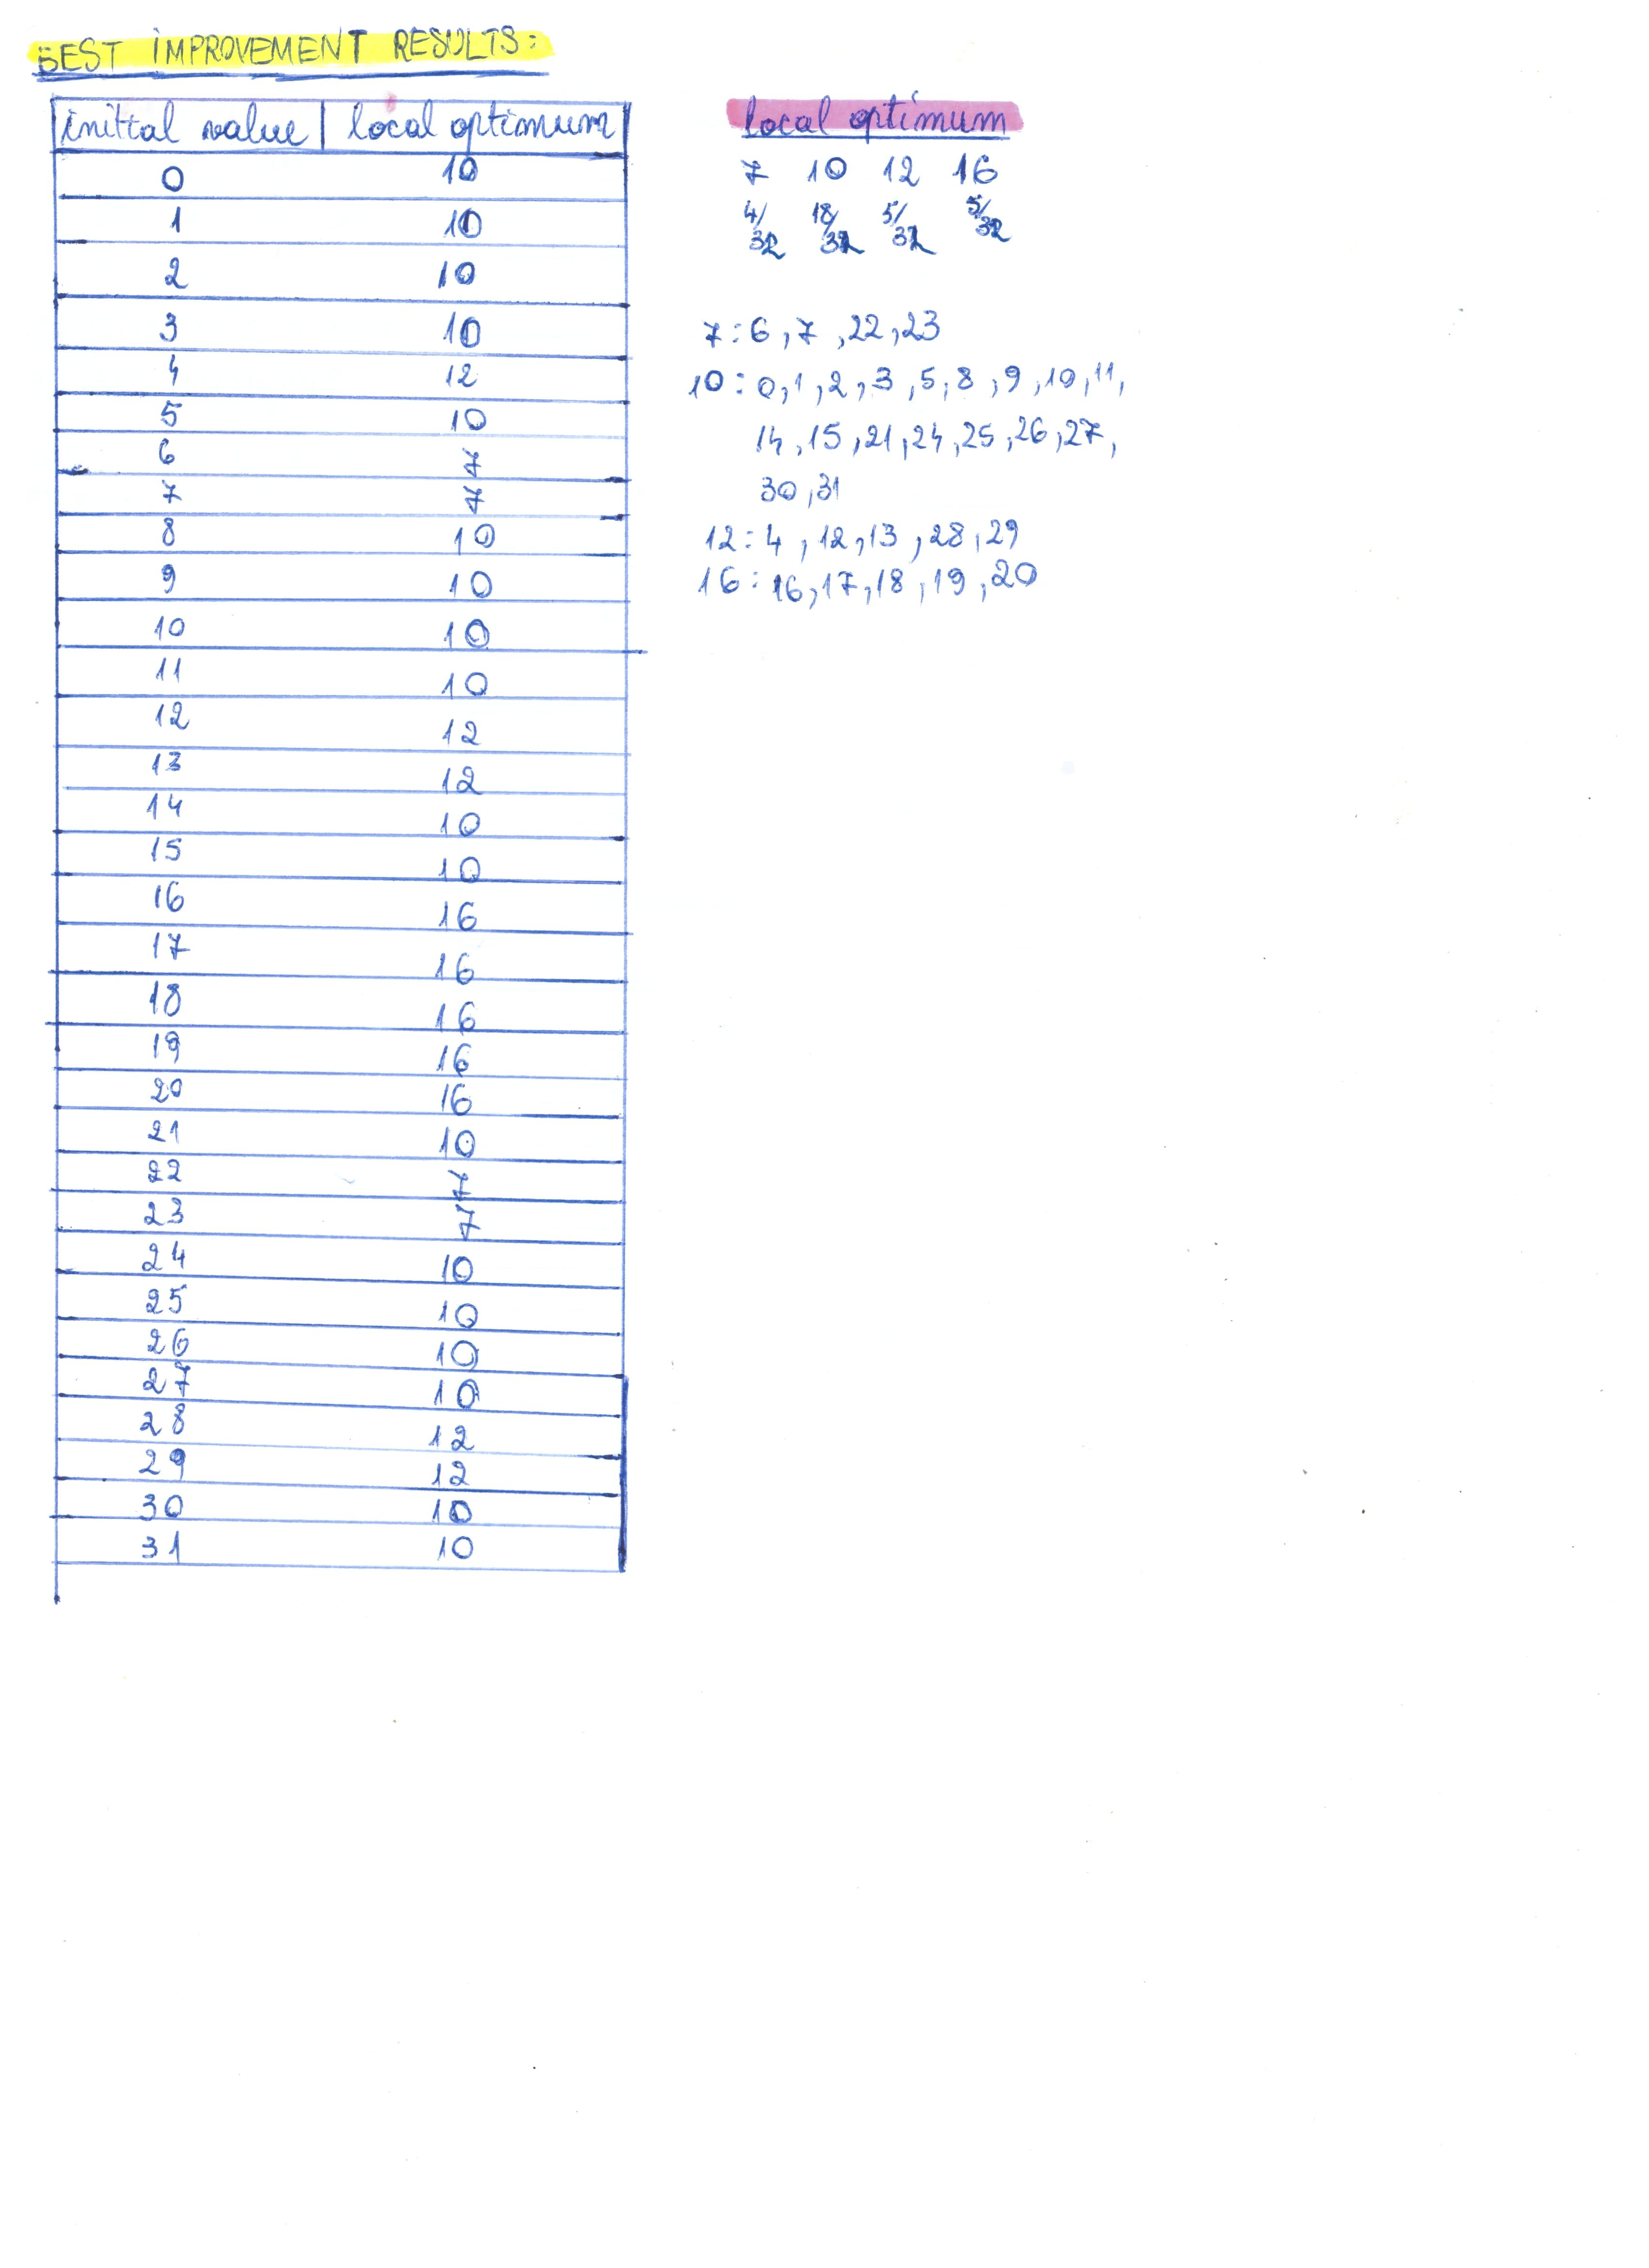 BEST IMPROVEMENT RESULTS:
initial value | local optimum
0 10
1 10
2 10
3 10
4 12
5 10
6 7
7 7
8 10
9 10
10 10
11 10
12 12
13 12
14 10
15 10
16 16
17 16
18 16
19 16
20 16
21 10
22 7
23 7
24 10
25 10
26 10
27 10
28 12
29 12
30 10
31 10
local optimum
7 10 12 16
4/32 18/32 5/32 5/32
7: 6, 7, 22, 23
10: 0, 1, 2, 3, 5, 8, 9, 10, 11,
14, 15, 21, 24, 25, 26, 27,
30, 31
12: 4, 12, 13, 28, 29
16: 16, 17, 18, 19, 20